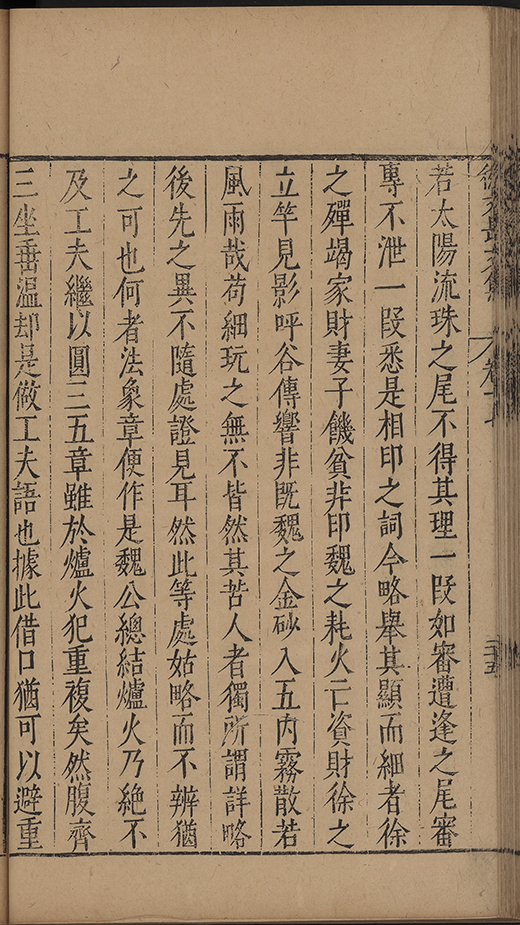 卷十七
二十五
若太陽流珠之尾不得其理一段如審遭逢之尾審
專不泄一段悉是相印之詞今略舉其顯而細者徐
之殫竭家財妻子饑貧非印魏之耗火亡資財徐之
立竿見影呼谷傳響非既魏之金砂入五內霧散若
風雨哉苟細玩之無不皆然其苦人者獨所謂詳略
後先之異不隨處證見耳然此等處姑略而不辨猶
之可也何者法象章便作是魏公總結爐火乃絶不
及工夫繼以圓三五章雖於爐火犯重複矣然腹齊
三坐垂溫却是做工夫語也據此借口猶可以避重